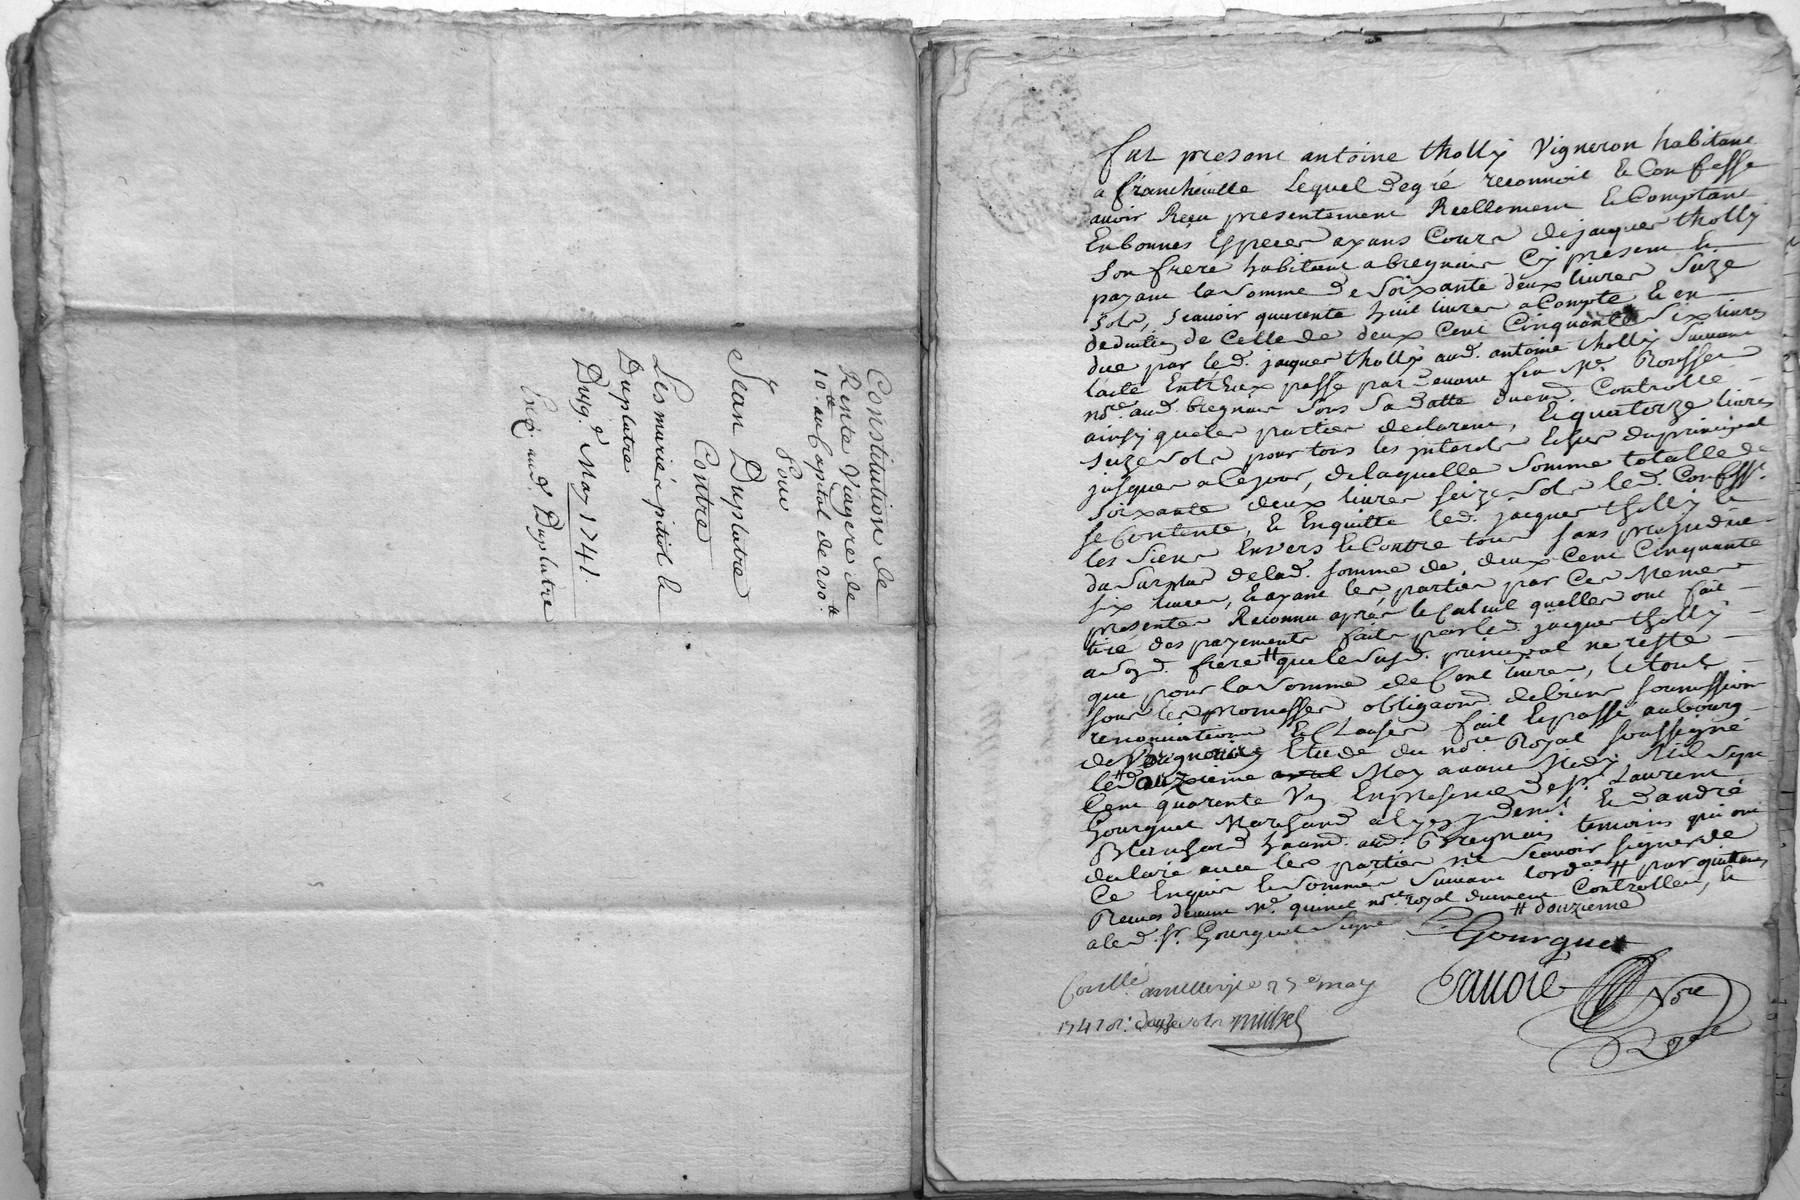 Constitution de
Rente Viagere de
10.ᵗᵗ au Capital de 200.ᵗᵗ
Pour
Jean Duplatre
Contre
Les mariés pitiot &
Duplatre
Du 9.ᵉ May 1741.
Exp. aud. Duplatre
fut present antoine tholly Vigneron habitant
a francheville Lequel degré reconnoit & Confesse
avoir Receu presentement Reellement & Comptant
En bonnes Especes ayans Cours de jacques tholly
son frere habitant a bregnais Cy present &
payant la somme de soixante deux livres seize
sols, scavoir quarente huit livres a Compte & en
deduction de Celle de deux Cent Cinquante six livres
due par led. jacques tholly aud. antoine tholly suivant
l'acte Entr'Eux passé par devant feu Mᵉ Rousset
noʳᵉ aud. bregnais sous sa datte duement Controllé
ainsy que les parties declarent, & quatorze livres
seize sols pour tous les interests Echus du principal
jusques a Ce jour, de laquelle somme totalle de
soixante deux livres seize sols led. Confessᵗ
se Contente, & En quitte led. jacques tholly &
les siens Envers & Contre tous sans prejudice
du surplus de lad. somme de deux Cent Cinquante
six livres, & ayant les parties par Ces Memes
presentes Reconnu aprés le Calcul quelles ont fait
des payements faits par led. jacques tholly
a sond. frere # que le susd. principal ne reste
que pour la somme de Cent livres, le tout
sous les promesses obligaons de biens soumissions
renonciations & Clauses fait & passé au bourg
de Bregnais Etude du noʳᵉ Royal soussigné
le # May avant Midy Mil sept
Cent quarente Un En presence de sʳ Laurent
Gourguet Marchand & d'andré
Blanchard aud. Bregnais temoins qui ont
declaré avec les parties ne scavoir signer de
Ce Enquis & sommés suivant lord.ᶜᵉ # par quittances
Receues devant Mᵉ quinet noʳᵉ royal duement Controllées, &
a led. sʳ Gourguet signé # douzieme
Gourguet
Savoie Noʳᵉ
Royal
Conllé a may
1741 R. douze sols Michel